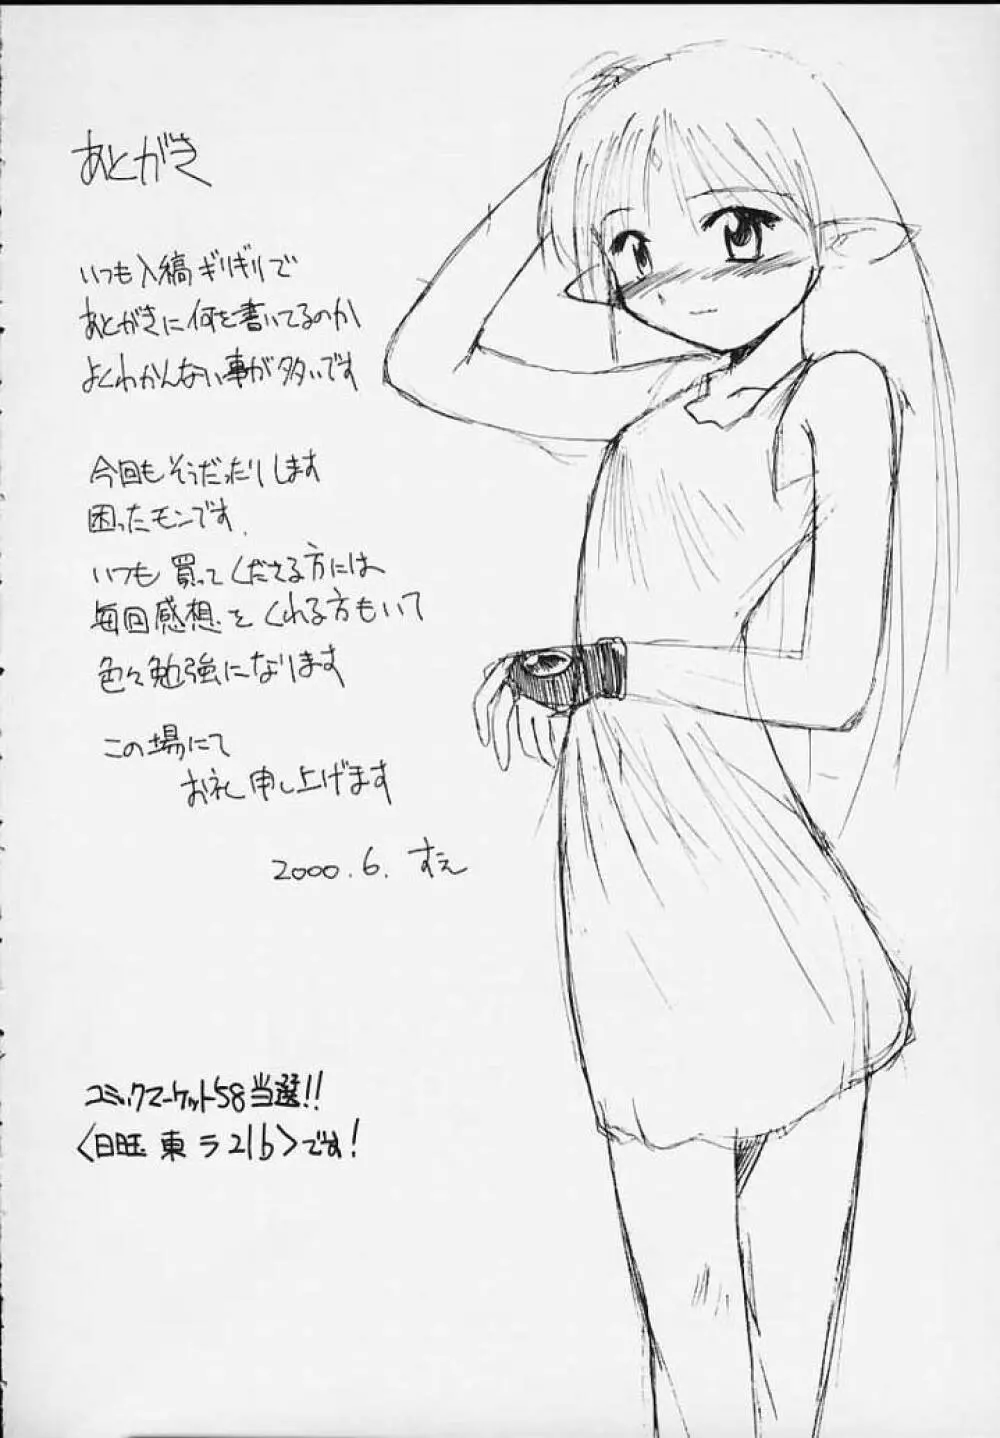 あとがき
いつも入稿ギリギリで
あとがきに何を書いてるのか
よくわかんない事が多いです
今回もそうだったりします
困ったモンです.
いつも買ってくださる方には、
毎回感想をくれる方もいて
色々勉強になります
この場にて
お礼申し上げます
2000.6. すえ
コミックマーケット58当選!!
<日旺 東 ラ21b>です!